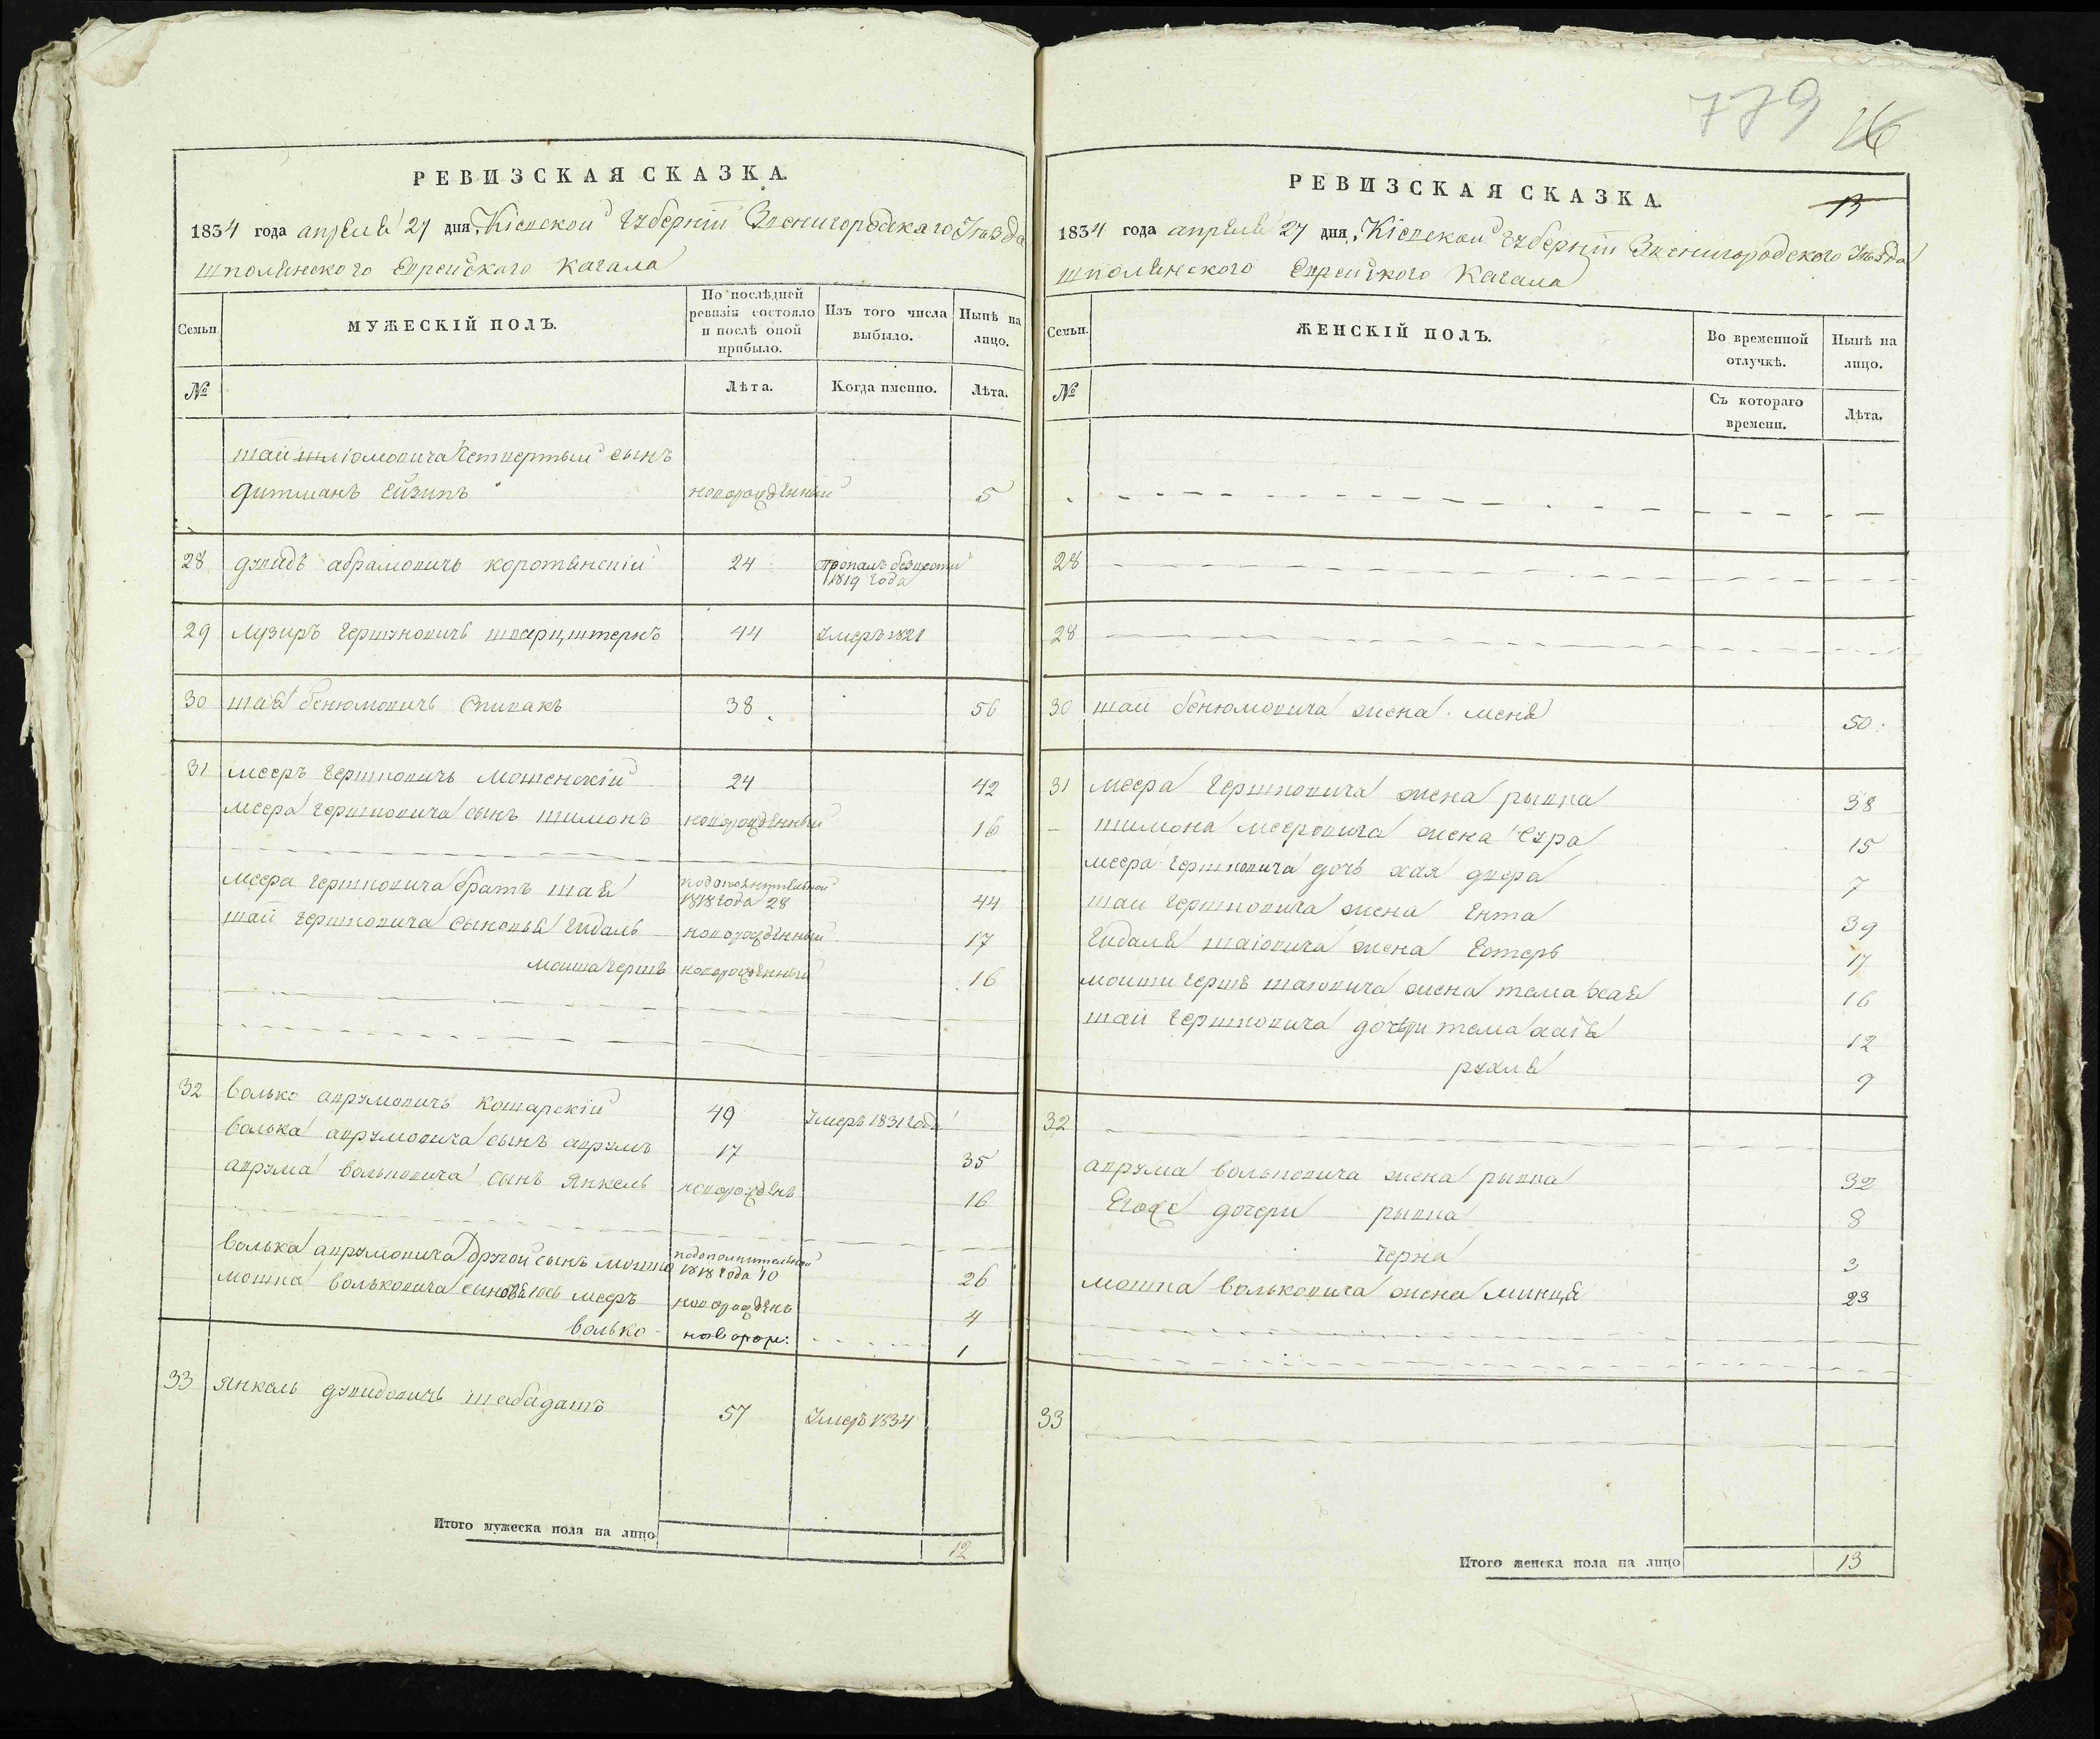 779 16
РЕВИЗСКАЯ СКАЗКА.
1834 года апреля 27 дня, Кіевской Губерніи Звенигородскаго Уезда
шполянского Еврейскаго Кагала
Семьи.
МУЖЕСКІЙ ПОЛЪ.
По послѣдней ревизіи состояло и послѣ оной прибыло.
Изъ того числа выбыло.
Нынѣ на лицо.
№
Лѣта.
Когда именно.
Лѣта.
шаи шлюмовича четвертый сынъ
дитманъ ейзикъ новорожденный 5
28 дувидъ абрамовичъ коротянскій 24 пропалъ безвести 1819 года
29 лузиръ гершуновичъ шварцштернъ 44 Умеръ 1821
30 шая бенюмовичъ Спивакъ 38 56
31 мееръ гершковичъ Мошенскій 24 42
меера гершковича сынъ шимонъ новорожденный 16
меера гершковича братъ шая подополнительной 1818 года 28 44
шаи гершковича сыновья гидаль новорожденный 17
мошка гершъ новорожденный 16
32 волько аврумовичъ Кошарскій 49 Умеръ 1831 года
волька аврумовича сынъ аврумъ 17 35
аврума вольковича сынъ Янкель новорожденъ 16
волька аврумовича другой сынъ мошко подополнительной 1818 года 10 26
мошка вольковича сыновья иось мееръ новорожденъ 4
волько новорож: 1
33 Янкель дувидовичъ шабадашъ 57 Умеръ 1834
Итого мужеска пола на лицо 12
РЕВИЗСКАЯ СКАЗКА.
13
1834 года апреля 27 дня, Кіевской Губерніи Звенигородского Уезда
шполянского Еврейского Кагала
Семьи.
ЖЕНСКІЙ ПОЛЪ.
Во временной отлучкѣ.
Нынѣ на лицо.
№
Съ котораго времени.
Лѣта.
28
28
30 шаи бенюмовича жена меня 50
31 меера гершковича жена рывка 38
шимона мееровича жена сура 15
меера гершковича дочь хая двера 7
шаи гершковича жена Ента 39
гидаля шаіовича жена Естеръ 17
мошки гершъ шаіовича жена тема хая 16
шаи гершковича дочери тема хаія 12
рухля 9
32
аврума вольковича жена рывка 32
Егоже дочери рывка 8
черна 3
мошка вольковича жена минця 23
33
Итого женска пола на лицо 13